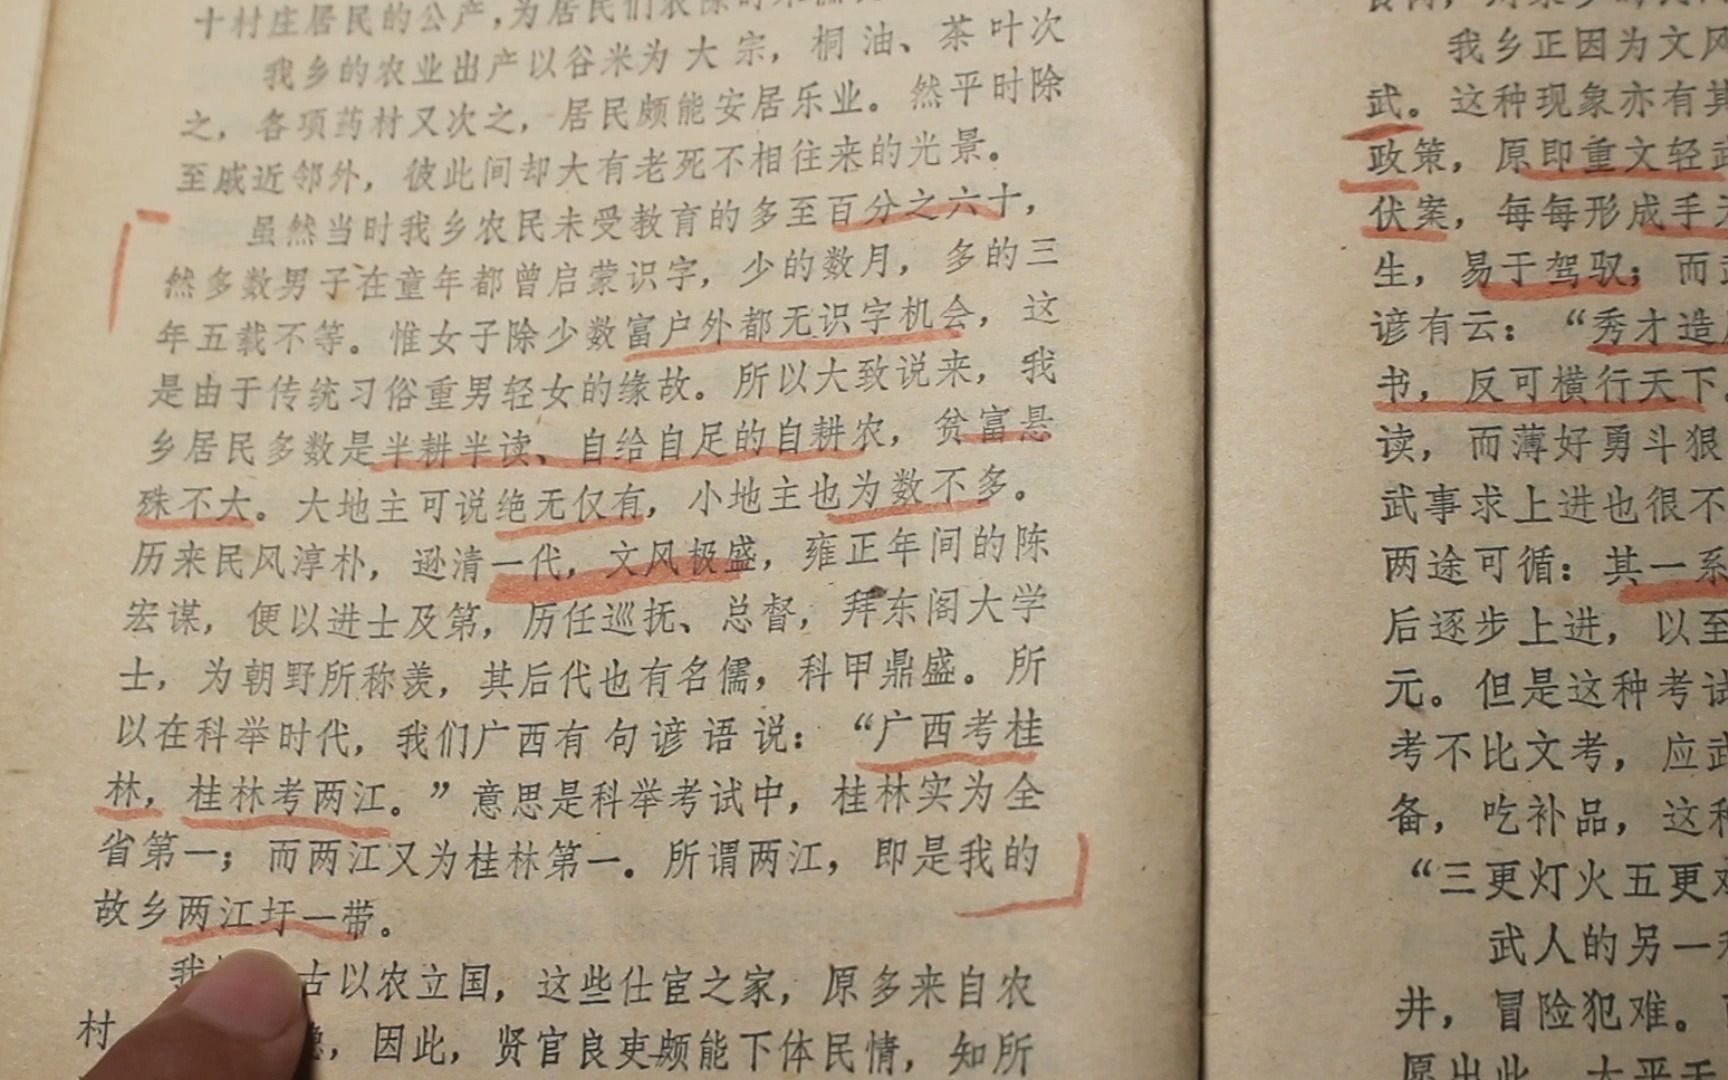 十村庄居民的公产，为居民们农隙时
我乡的农业出产以谷米为大宗，桐油、茶叶次
之，各项药材又次之，居民颇能安居乐业。然平时除
至戚近邻外，彼此间却大有老死不相往来的光景。
虽然当时我乡农民未受教育的多至百分之六十，
然多数男子在童年都曾启蒙识字，少的数月，多的三
年五载不等。惟女子除少数富户外都无识字机会，这
是由于传统习俗重男轻女的缘故。所以大致说来，我
乡居民多数是半耕半读、自给自足的自耕农，贫富悬
殊不大。大地主可说绝无仅有，小地主也为数不多。
历来民风淳朴，逊清一代，文风极盛，雍正年间的陈
宏谋，便以进士及第，历任巡抚、总督，拜东阁大学
士，为朝野所称羡，其后代也有名儒，科甲鼎盛。所
以在科举时代，我们广西有句谚语说：“广西考桂
林，桂林考两江。”意思是科举考试中，桂林实为全
省第一；而两江又为桂林第一。所谓两江，即是我的
故乡两江圩一带。
我 古以农立国，这些仕宦之家，原多来自农
村 ，因此，贤官良吏颇能下体民情，知所
我乡正因为文风
武。这种现象亦有其
政策，原即重文轻武
伏案，每每形成手无
生，易于驾驭；而
谚有云：“秀才造
书，反可横行天下
读，而薄好勇斗狠
武事求上进也很不
两途可循：其一系
后逐步上进，以至
元。但是这种考试
考不比文考，应武
备，吃补品，这种
“三更灯火五更
武人的另一
井，冒险犯难。
愿出此。太平天